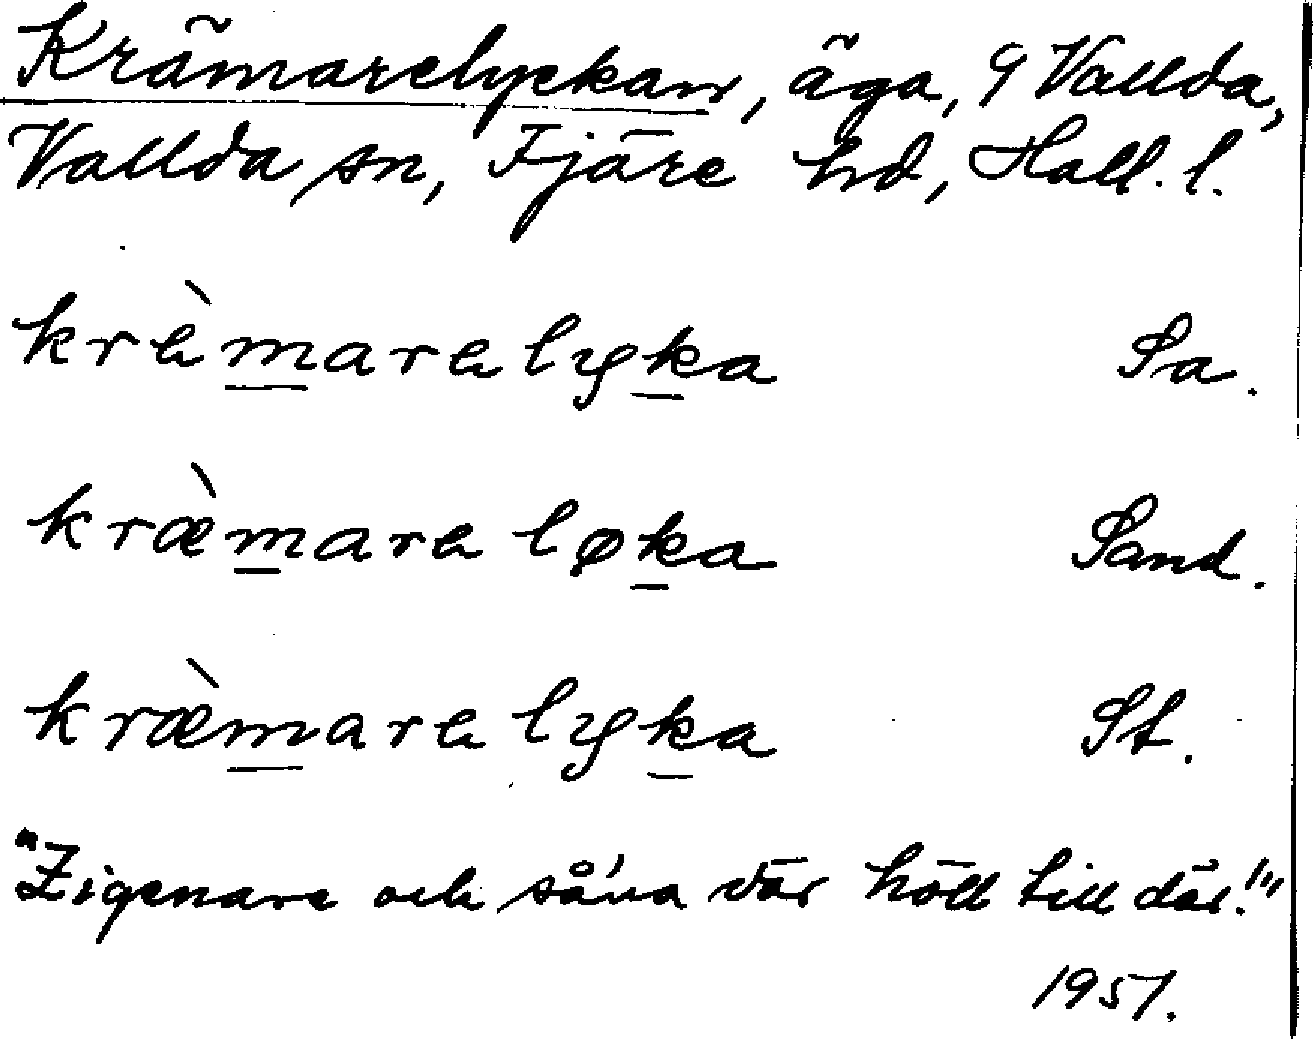 Krämarelyckan, äga, 9 Vallda,
Vallda sn, Fjäre hd, Hall. l.
krèmarelyka Sa.
kræ̀mareløka Sand.
kræ̀marelyka St.
"Zigenare och såna där höll till där!"
1957.